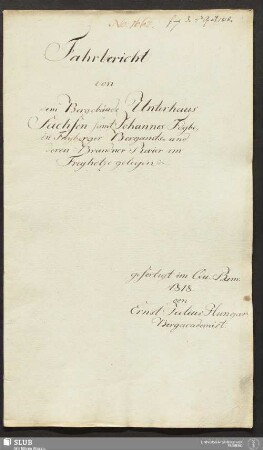 Fahrbericht
von
dem Berggebäude Unterhaus
Sachsen samt Johannes Fdgbe.
in Freyberger Bergamts- und
deren Brander Revier im
Freyholze gelegen.
gefertigt im Qu. Rem.
1818.
von
Ernst Julius Hunger
Bergacademist.
SLUB